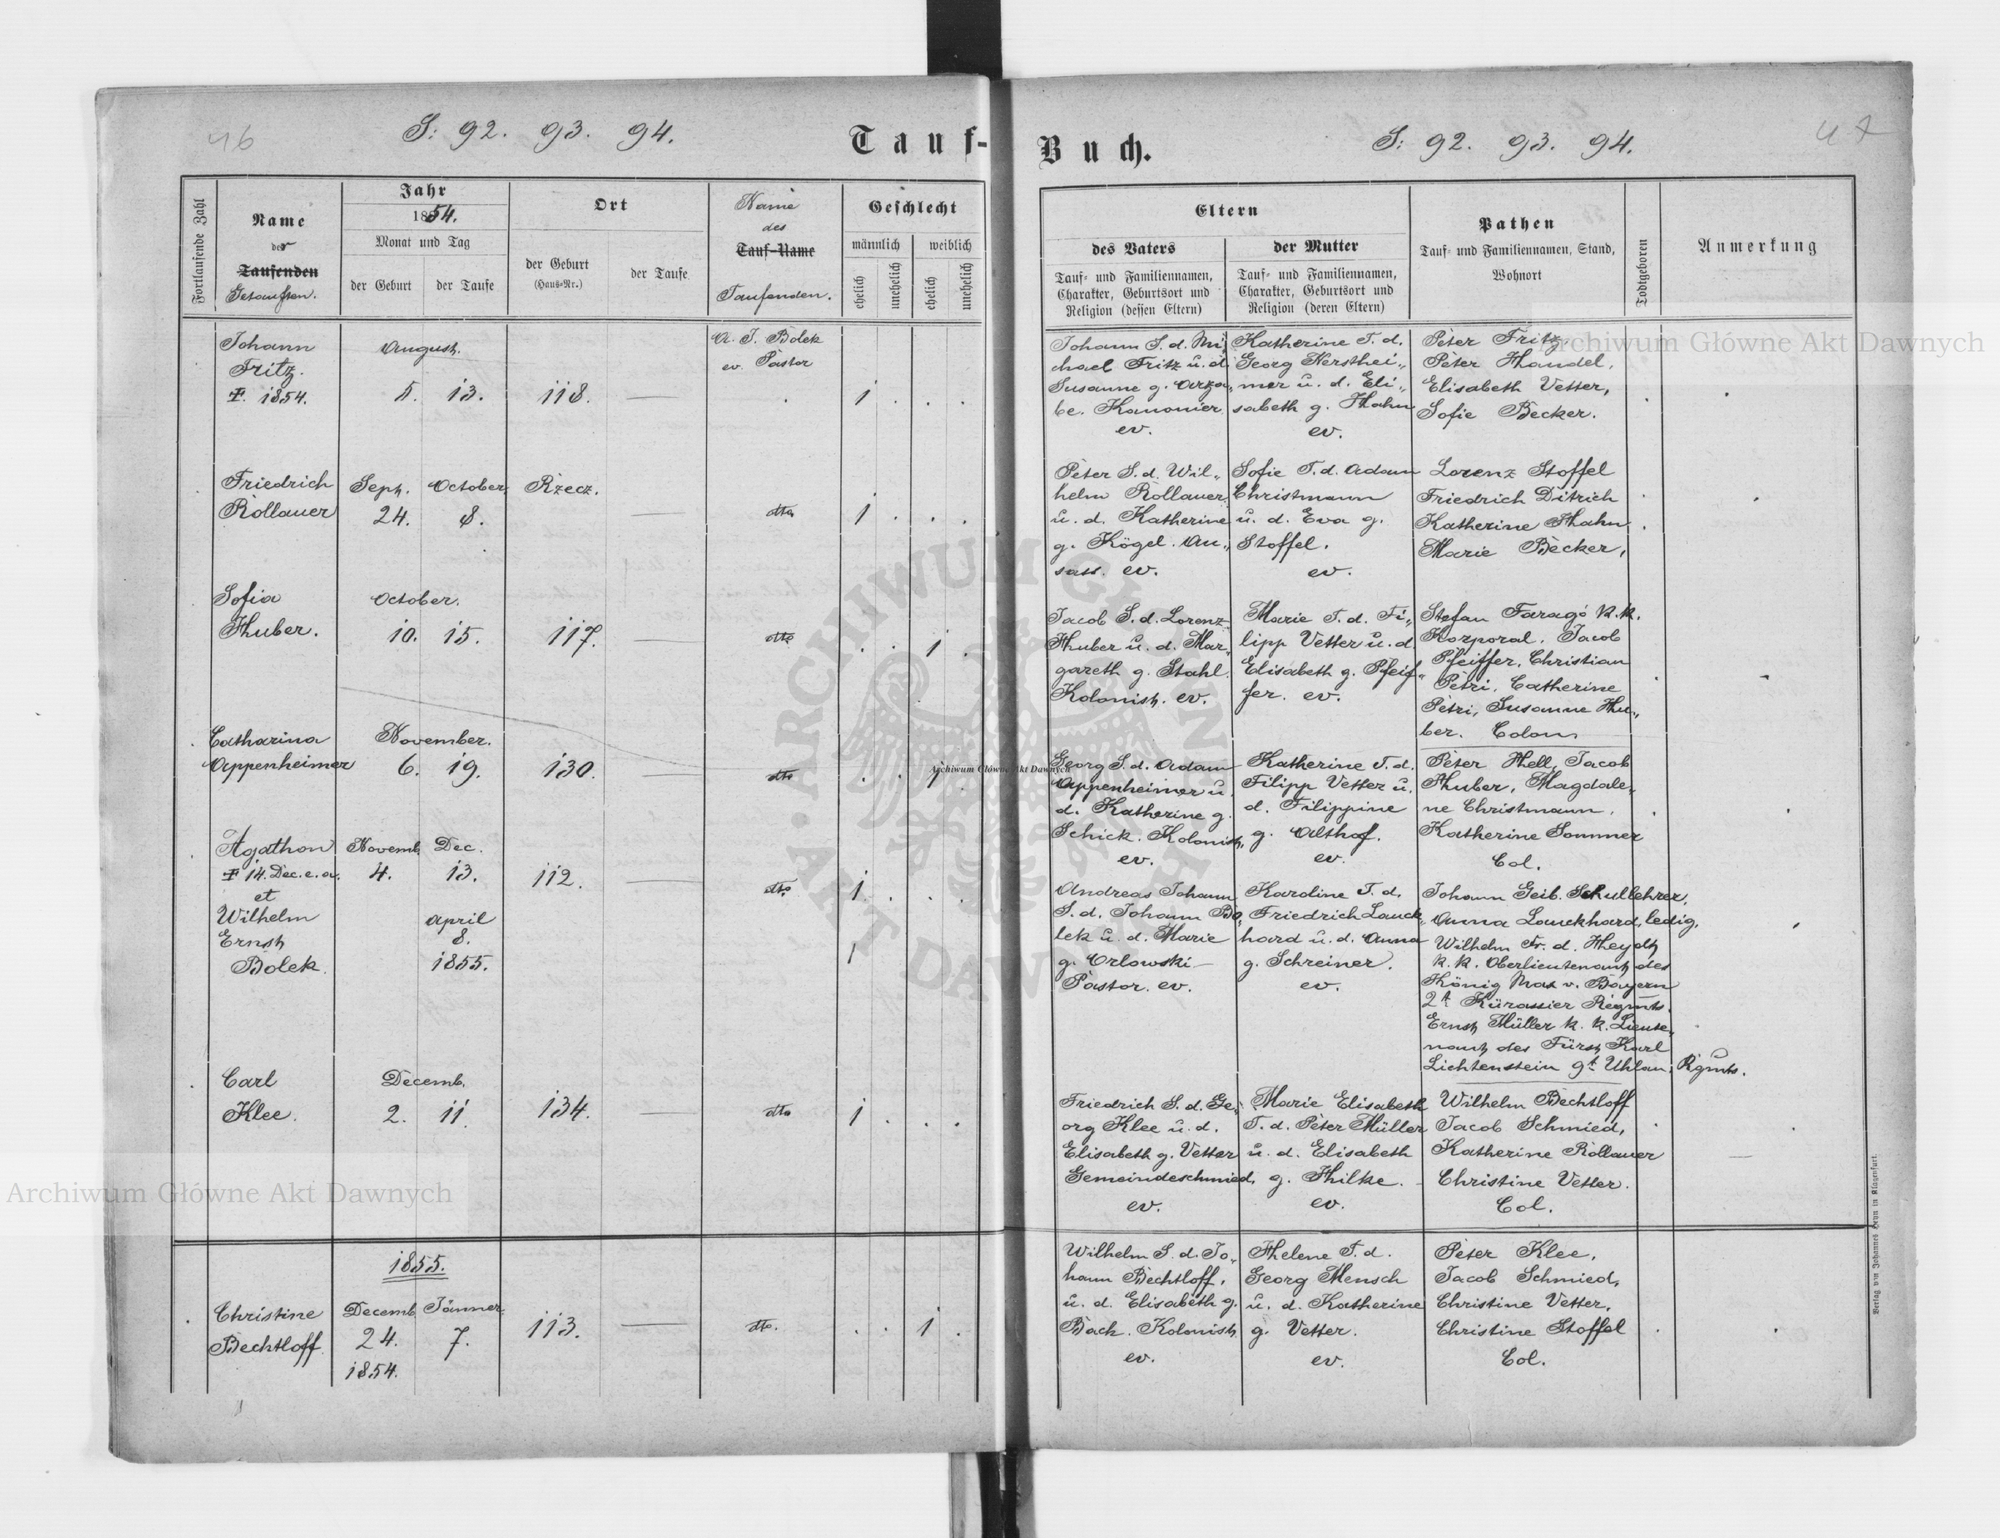 46
S: 92. 93. 94.
Tauf-
Buch.
S: 92. 93. 94.
47
Fortlaufende Zahl
Name
der
Taufenden
Getauften.
Jahr
1854.
Monat und Tag
der Geburt
der Taufe
Ort
der Geburt
(Haus-Nr.)
der Taufe
Name
des
Tauf-Name
Taufenden.
Geschlecht
männlich
weiblich
ehelich
unehelich
ehelich
unehelich
Eltern
des Vaters
Tauf- und Familiennamen,
Charakter, Geburtsort und
Religion (dessen Eltern)
der Mutter
Tauf- und Familiennamen,
Charakter, Geburtsort und
Religion (deren Eltern)
Pathen
Tauf- und Familiennamen, Stand,
Wohnort
Todtgeboren
Anmerkung
Johann
Fritz.
1854.
August.
5. 13.
118.
A. J. Bolek
ev. Pastor
1
Johann S. d. Mi
chael Fritz u. d.
Susanne g.
be. Kanonier
ev.
Katherine T. d.
Georg Hersthei„
mer u. d. Eli„
sabeth g. Hahn
ev.
Peter Fritz
Peter Handel,
Elisabeth Vetter,
Sofie Becker.
Friedrich
Rollauer
Sept. October,
24. 8.
Rzecz.
dto
1
Peter S. d. Wil„
helm Rollauer,
u. d. Katherine
g. Kögel. An„
sass. ev.
Sofie T. d. Adam
Christmann
u. d. Eva g.
Stoffel.
ev.
Lorenz Stoffel
Friedrich Ditrich
Katherine Hahn
Marie Becker,
Sofia
Huber.
October.
10. 15.
117.
dto
1
Jacob S. d. Lorenz
Huber u. d. Mar„
gareth g. Stahl.
Kolonist. ev.
Marie T. d. Fi„
lipp Vetter u. d
Elisabeth g. Pfeif„
fer. ev.
Stefan Faragó k. k.
Korporal, Jacob
Pfeiffer, Christian
Petri, Catherine
Petri, Susanne Hu„
ber. Colon.
Catharina
Appenheimer
November.
6. 19.
130.
dto
1
Georg S. d. Adam
Appenheimer u.
d. Katherine g.
Schick. Kolonist,
ev.
Katherine T. d.
Filipp Vetter u.
d. Filippine
g. Althof.
ev.
Peter Hell, Jacob
Huber, Magdale„
ne Christmann,
Katherine Sommer
Col.
Agathon
14. Dec. e. a.
et
Wilhelm
Ernst
Bolek.
Novemb. Dec.
4. 13.
April
8.
1855.
112.
dto
1
1
Andreas Johann
S. d. Johann Bo„
lek u. d. Marie
g. Orlowski
Pastor. ev.
Karoline T. d.
Friedrich Lauck„
hard u. d. Anna
g. Schreiner.
ev.
Johann Geib. Schullehrer,
Anna Lauckhard, ledig,
Wilhelm Fr. d. Heydt
k. k. Oberlieutenant des
König Max v. Bayern
2t Kürassier Regmts.
Ernst Müller k. k. Lieute„
nant des Fürst Karl
Lichtenstein 9t Uhlan. Rgmts.
Carl
Klee.
Decemb.
2. 11.
134.
dto
1
Friedrich S. d. Ge„
org Klee u. d.
Elisabeth g. Vetter
Gemeindeschmied,
ev.
Marie Elisabeth
T. d. Peter Müller
u. d. Elisabeth
g. Hilke.
ev.
Wilhelm Bechtloff
Jacob Schmied,
Katherine Rollauer
Christine Vetter.
Col.
1855.
Christine
Bechtloff.
Decemb. Jänner
24. 7.
1854.
113.
dto.
1
Wilhelm S. d. Jo„
hann Bechtloff,
u. d. Elisabeth g.
Bach. Kolonist
ev.
Helene T. d.
Georg Mensch
u. d. Katherine
g. Vetter.
ev.
Peter Klee,
Jacob Schmied,
Christine Vetter,
Christine Stoffel
Col.
Verlag von Johannes Heyn in Klagenfurt.
Archiwum Główne Akt Dawnych
Archiwum Główne Akt Dawnych
Archiwum Główne Akt Dawnych